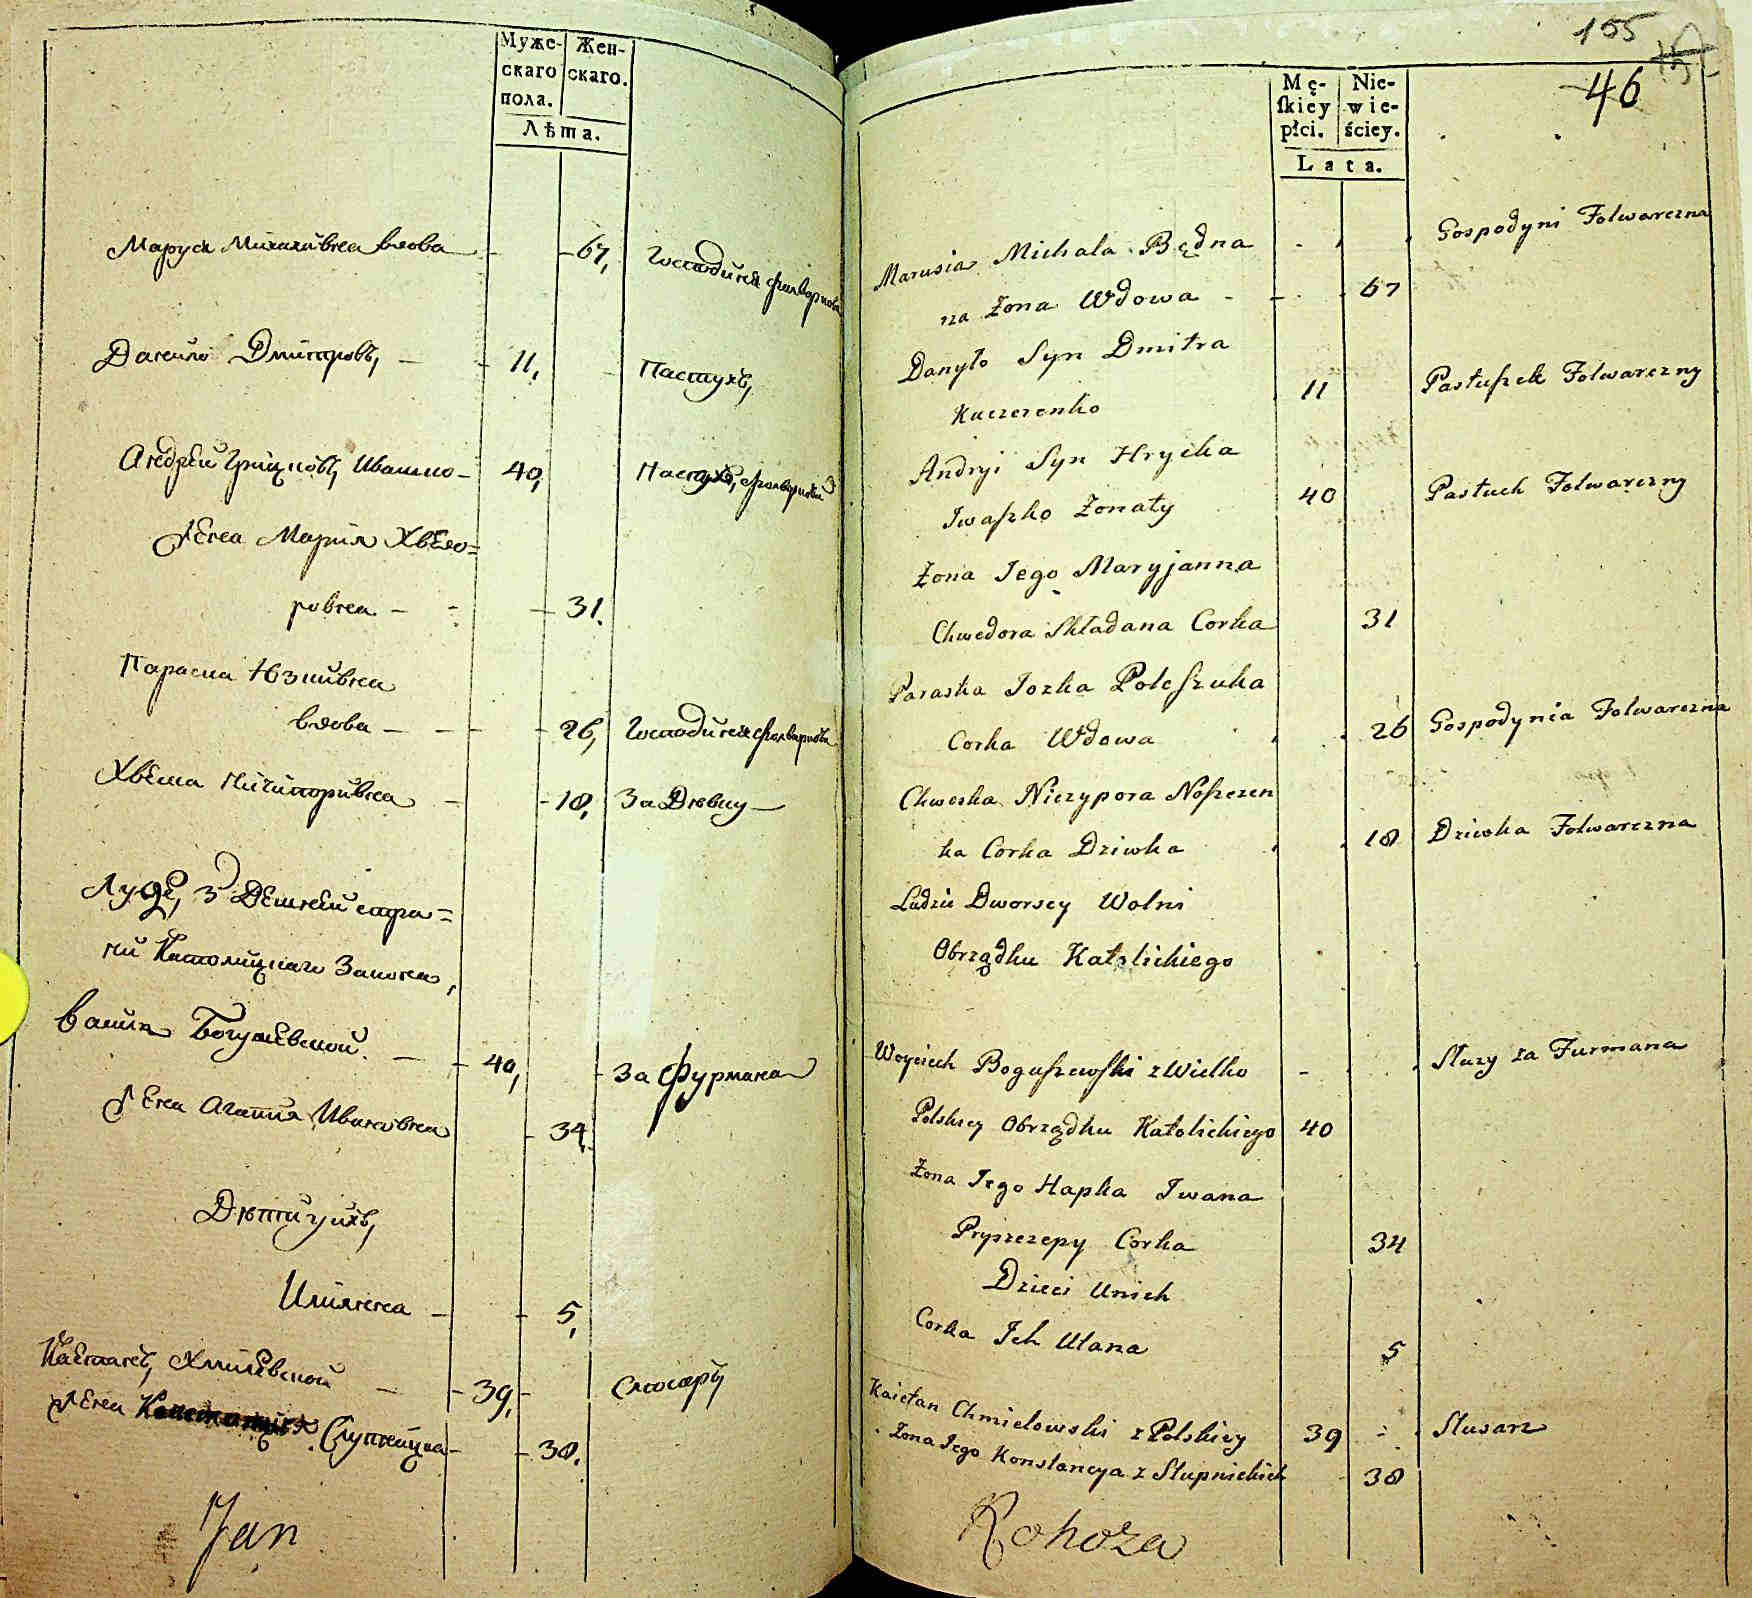 Муже-
скаго
пола.
Жен-
скаго.
Лѣта.
Маруся Михайлівна вдова - - 67, Господиня фолварковая
Данило Дмитровъ, - - 11, Пастухъ,
Андрей Грицковъ, Ивашко - 40, Пастухъ, фолварковій
Жена Марія Хведо=
ровна - - 31.
Параска Юзьківна
вдова - - 26, Господиня фолваркова
Хвеська Ничипорівна - - 18, За Дѣвку -
Луде, з
Католицкаго Закона,
Богушевской. - - 40, - За Фурмана
Жена Агапія Иванівна - 34,
Дѣти у ихъ,
Уліянна - - 5,
Каетанъ, Хмилевской - - 39, - Слюсаръ
Жена Слупницка - - 38.
Jan
155
46
Mę-
ſkiey
płci.
Nie-
wie-
ściey.
Lata.
Gospodyni Folwarczna
Marusia Michala Będna
na Zona Wdowa - - 67
Danyło Syn Dmitra
Kuczerenko 11 Pastuſzek Folwarczny
Andryi Syn Hrycka
Iwaſzko Zonaty 40 Pastuch Folwarczny
Zona Jego Maryjanna
Chwedora Składana Corka 31
Paraska Jozka Poleſzuka
Corka Wdowa 26 Gospodynia Folwarczna
Chweska Niczypora Noſzczen
ka Corka Dziwka 18 Dziwka Folwarczna
Ludzie Dworscy Wolni
Obrządku Katolickiego
Woyciech Boguſzewſki z Wielko - Sluzy za Furmana
Polskiey Obrządku Katolickiego 40
Zona Jego Hapka Iwana
Pryszczepy Corka 34
Dzieci Unich
Corka Ich Ulana 5
Kaietan Chmielowski z Polskiey 39 Slusarz
Zona Jego Konstancya z Slupnickich 38
Rohoza